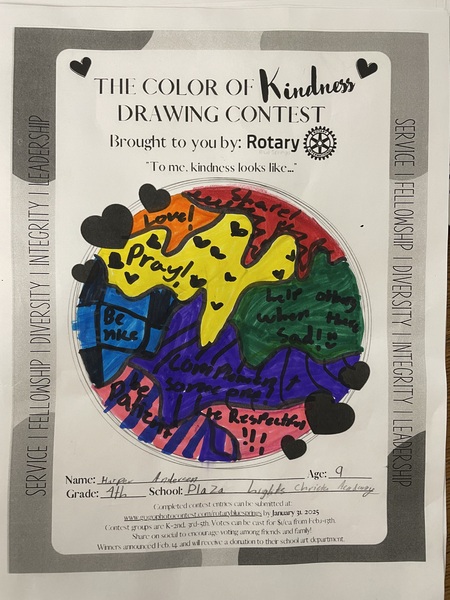 THE COLOR OF Kindness
DRAWING CONTEST
Brought to you by: Rotary
"To me, kindness looks like..."
Share!
Love!
Pray!
Help others
when their
Sad!!
Be
nice
someone!
be
Patient
be Respectful
!!!
SERVICE | FELLOWSHIP | DIVERSITY | INTEGRITY | LEADERSHIP
SERVICE | FELLOWSHIP | DIVERSITY | INTEGRITY | LEADERSHIP
Name: Harper Anderson
Age: 9
Grade: 4th School: Plaza Heights Christian Academy
Completed contest entries can be submitted at:
by January 31, 2025
Contest groups are K-2nd, 3rd-5th. Votes can be cast for $1/ea from Feb.1-13th.
Share on social to encourage voting among friends and family!
Winners announced Feb. 14, and will receive a donation to their school art department.